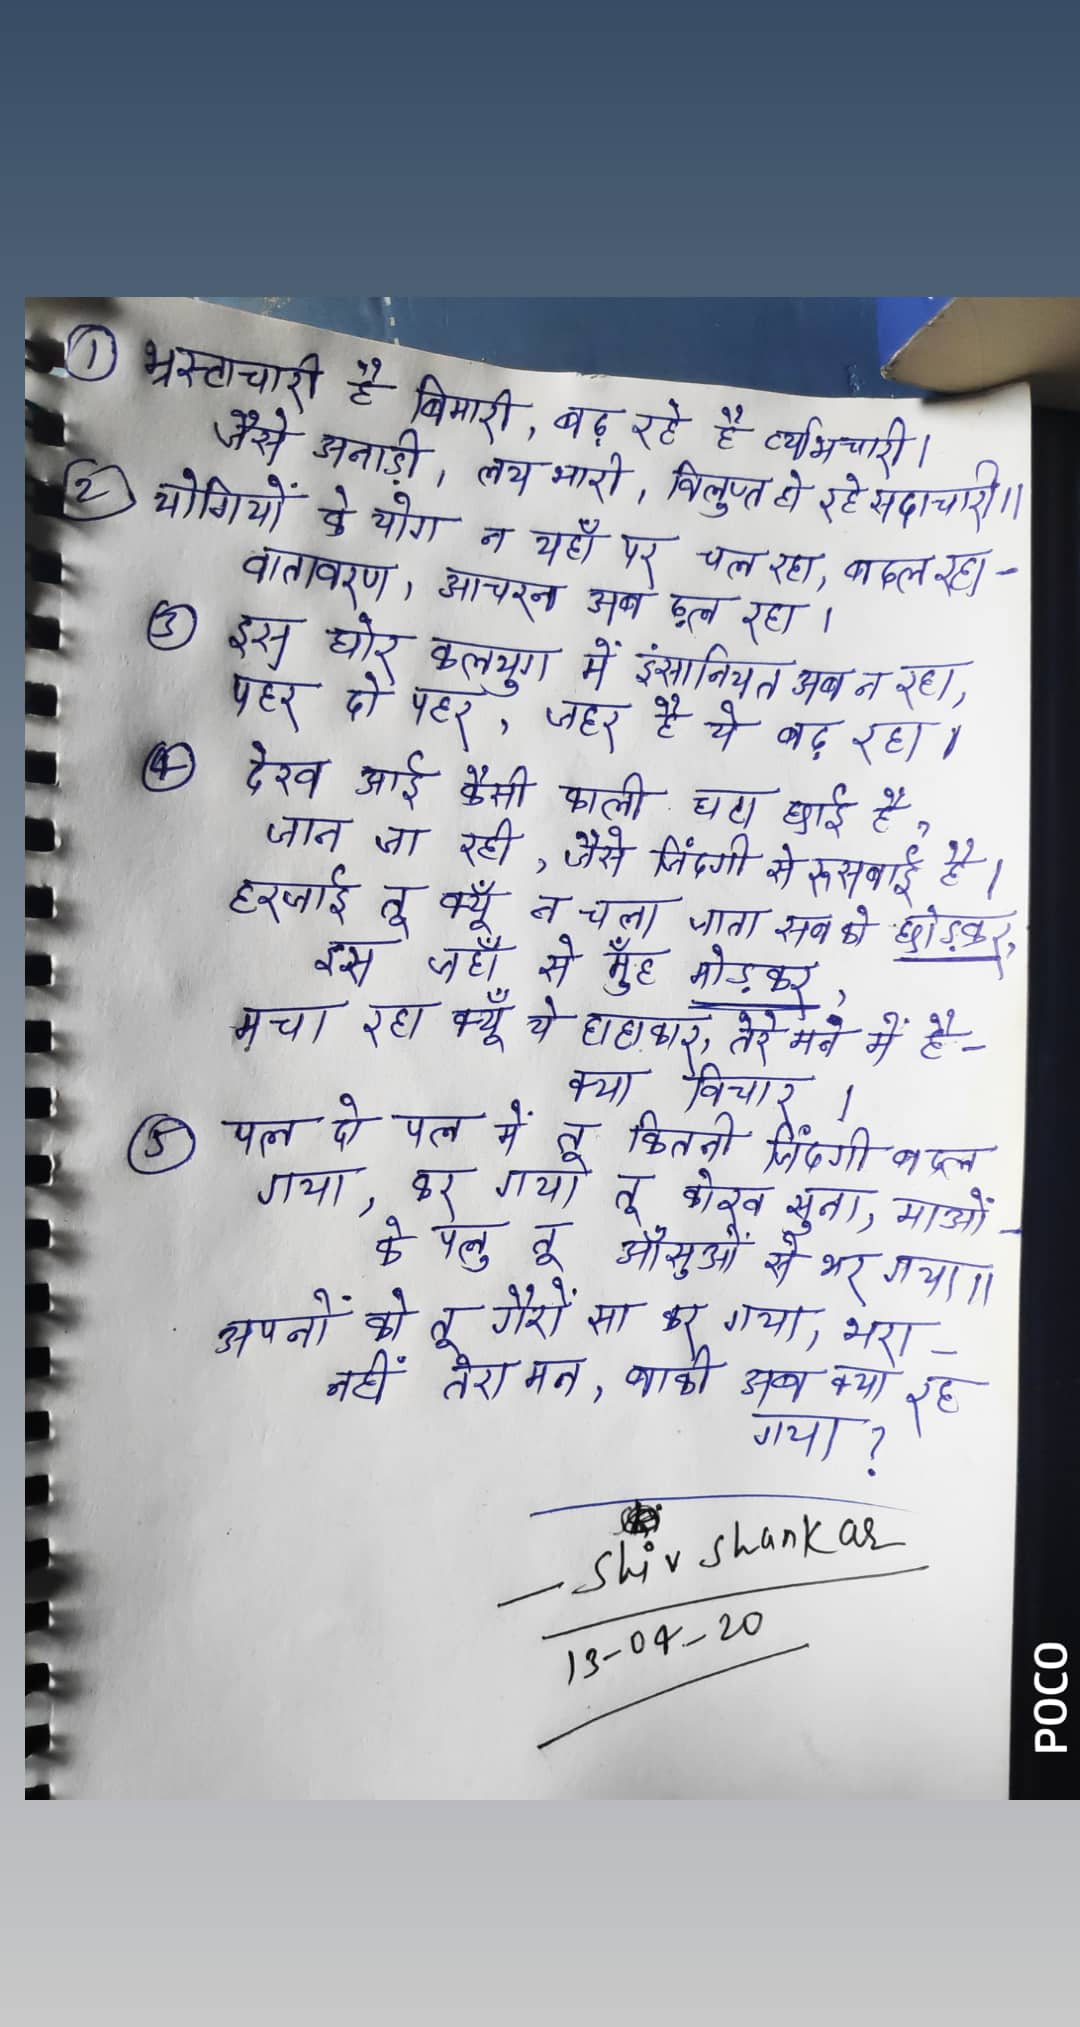 ① भ्रस्टाचारी है बिमारी, बढ़ रहे है व्यभिचारी।
जैसे अनाड़ी, लय भारी, विलुप्त हो रहे सदाचारी॥
② योगियों के योग न यहाँ पर चल रहा, बदल रहा-
वातावरण, आचरन अब ढ़ल रहा।
③ इस घोर कलयुग में इंसानियत अब न रहा,
पहर दो पहर, जहर है ये बढ़ रहा।
④ देख आई कैसी काली घटा छाई है,
जान जा रही, जैसे जिंदगी से रूसवाई है।
हरजाई तू क्यूँ न चला जाता सबको छोड़कर,
इस जहाँ से मुँह मोड़कर,
मचा रहा क्यूँ ये हाहाकार, तेरे मन में है-
क्या विचार।
⑤ पल दो पल में तू कितनी जिंदगी बदल
गया, कर गया तू कोख सुना, माओं-
के पलु तू आँसुओं से भर गया॥
अपनों को तू गैरों सा कर गया, भरा-
नहीं तेरा मन, बाकी अब क्या रह
गया?
- Shiv Shankar
13-04-20
POCO